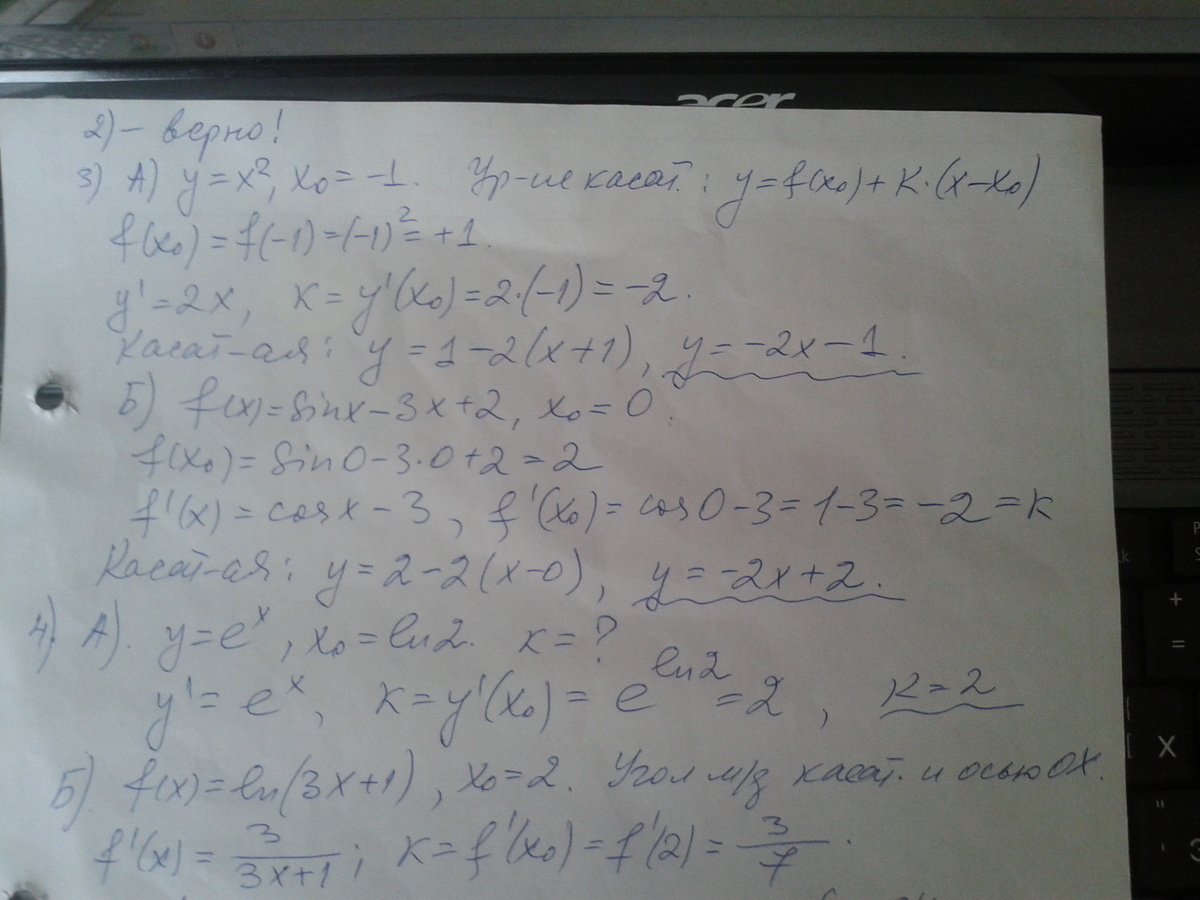 acer
2) – верно!
3) А) y = x², x₀ = -1. Ур-ие касат.: y = f(x₀) + k·(x-x₀)
f(x₀) = f(-1) = (-1)² = +1.
y' = 2x, k = y'(x₀) = 2·(-1) = -2.
Касат-ая: y = 1-2(x+1), y = -2x-1.
Б) f(x) = sinx - 3x + 2, x₀ = 0.
f(x₀) = sin0 - 3·0 + 2 = 2
f'(x) = cosx - 3, f'(x₀) = cos0 - 3 = 1-3 = -2 = k
Касат-ая: y = 2-2(x-0), y = -2x+2.
4) А). y = eˣ, x₀ = ln2. k = ?
y' = eˣ, k = y'(x₀) = e^ln2 = 2, k = 2
Б) f(x) = ln(3x+1), x₀ = 2. Угол м/з касат. и осью ОХ.
f'(x) = 3/(3x+1); k = f'(x₀) = f'(2) = 3/7.